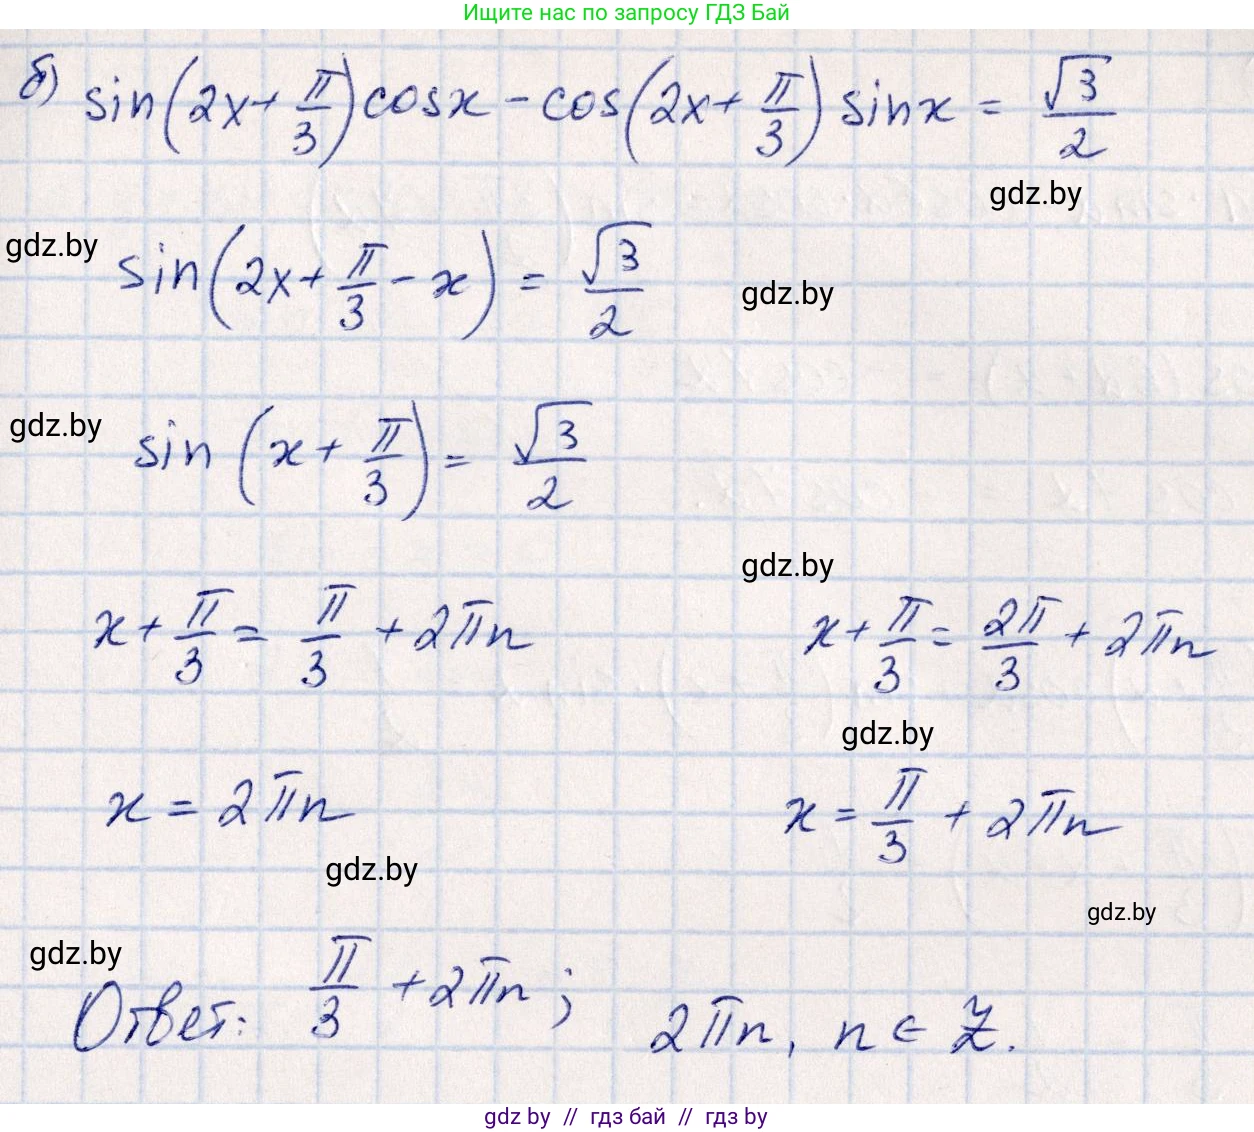 Ищите нас по запросу ГДЗ Бай
б) sin(2x+π/3)cosx - cos(2x+π/3) sinx = √3/2
gdz.by
gdz.by
sin(2x+π/3-x) = √3/2
gdz.by
gdz.by
sin(x+π/3) = √3/2
gdz.by
x+π/3 = π/3 + 2πn
x+π/3 = 2π/3 + 2πn
gdz.by
x = 2πn
x = π/3 + 2πn
gdz.by
gdz.by
gdz.by
Ответ: π/3 + 2πn; 2πn, n ∈ Z.
gdz.by // гдз бай // гдз by